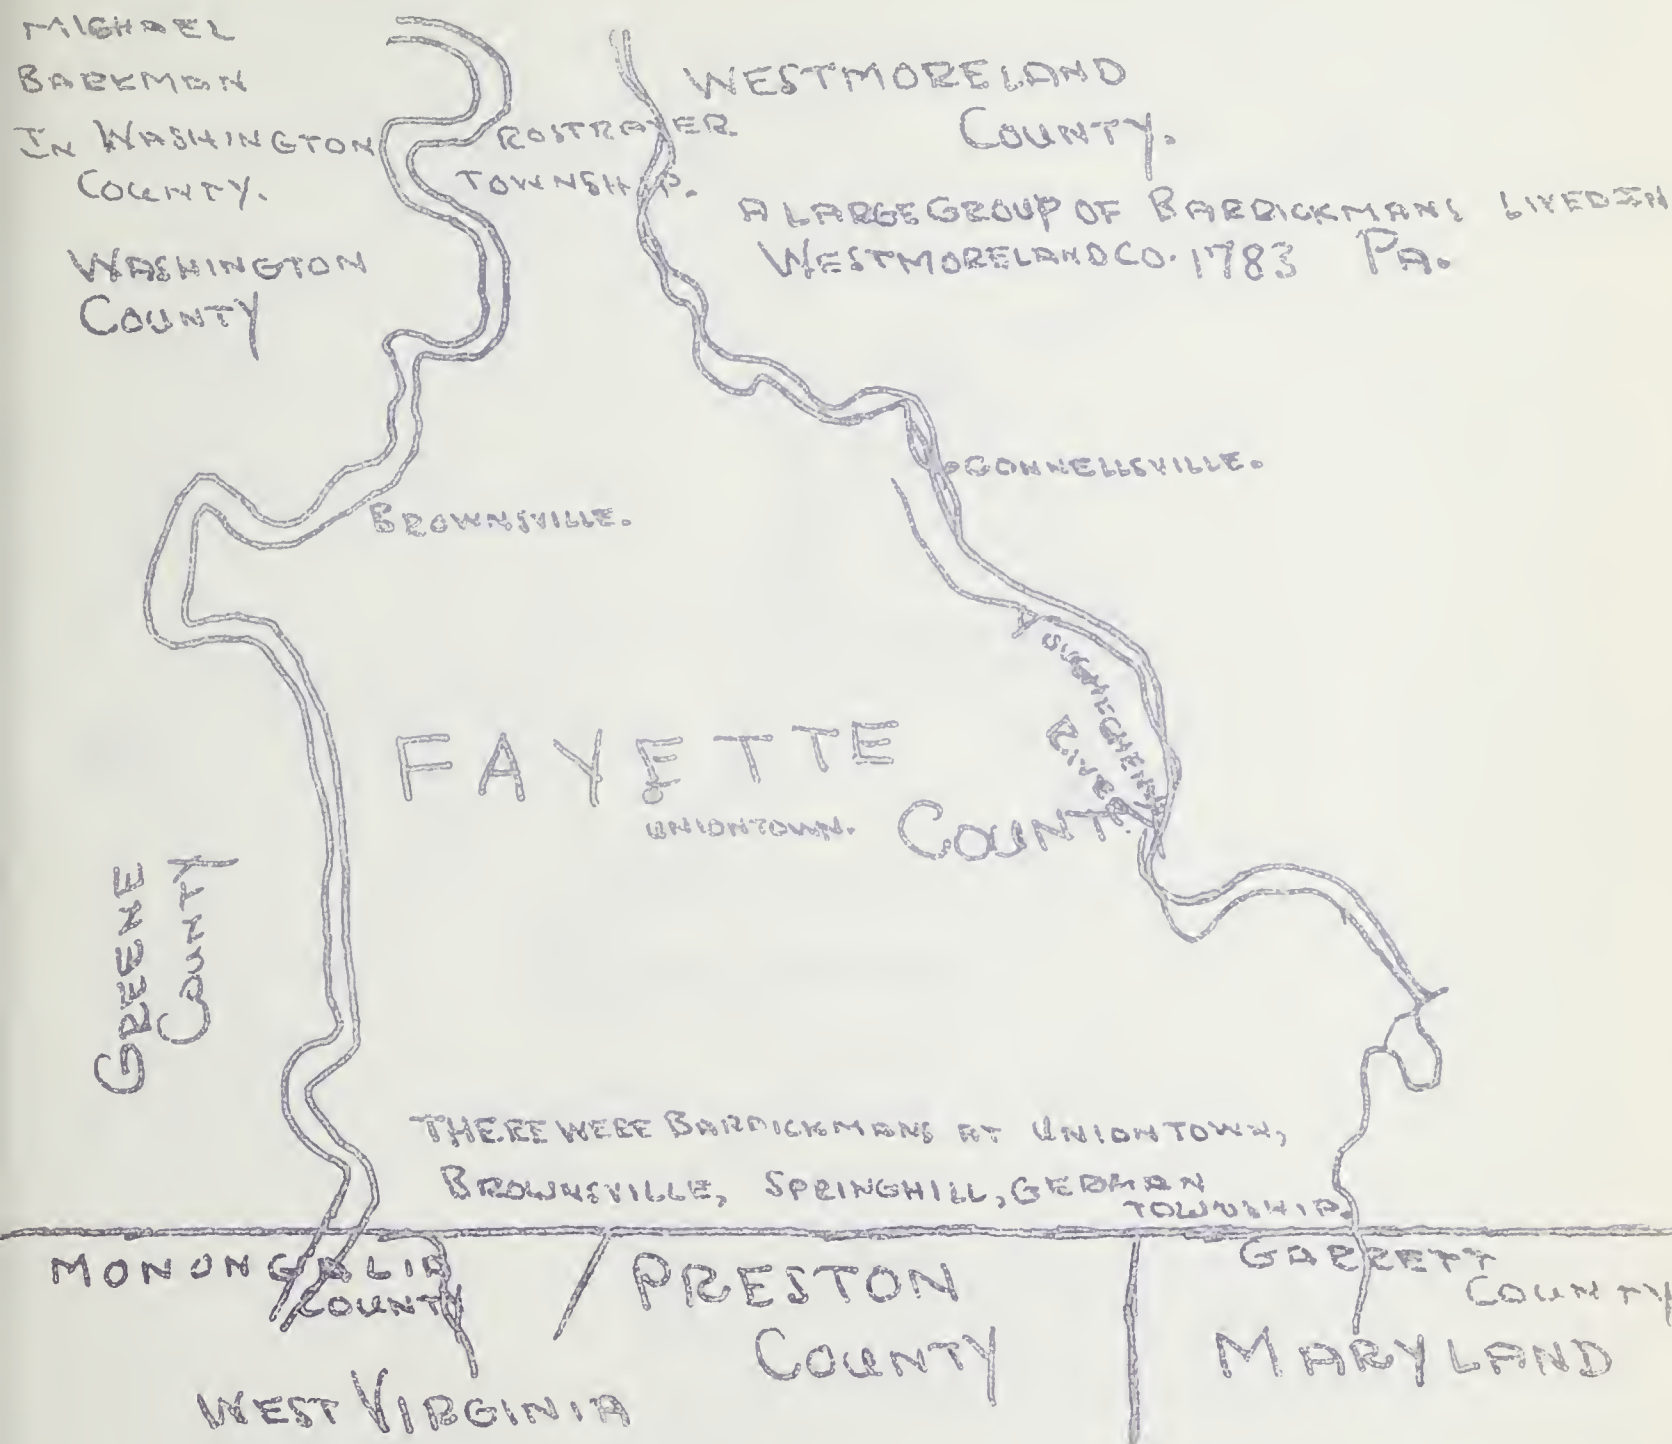 MICHAEL
BARKMAN
IN WASHINGTON
COUNTY.
WASHINGTON
COUNTY
ROSTRAVER
TOWNSHIP.
WESTMORELAND
COUNTY.
A LARGE GROUP OF BARRICKMANS LIVED IN
WESTMORELAND CO. 1783 PA.
CONNELLSVILLE.
BROWNSVILLE.
YOUGHIOGHENY
RIVER.
FAYETTE
COUNTY
UNIONTOWN.
GREENE
COUNTY
THERE WERE BARRICKMANS AT UNIONTOWN,
BROWNSVILLE, SPRINGHILL, GERMAN
TOWNSHIP.
MONONGALIA
COUNTY
PRESTON
COUNTY
GARRETT
COUNTY
WEST VIRGINIA
MARYLAND